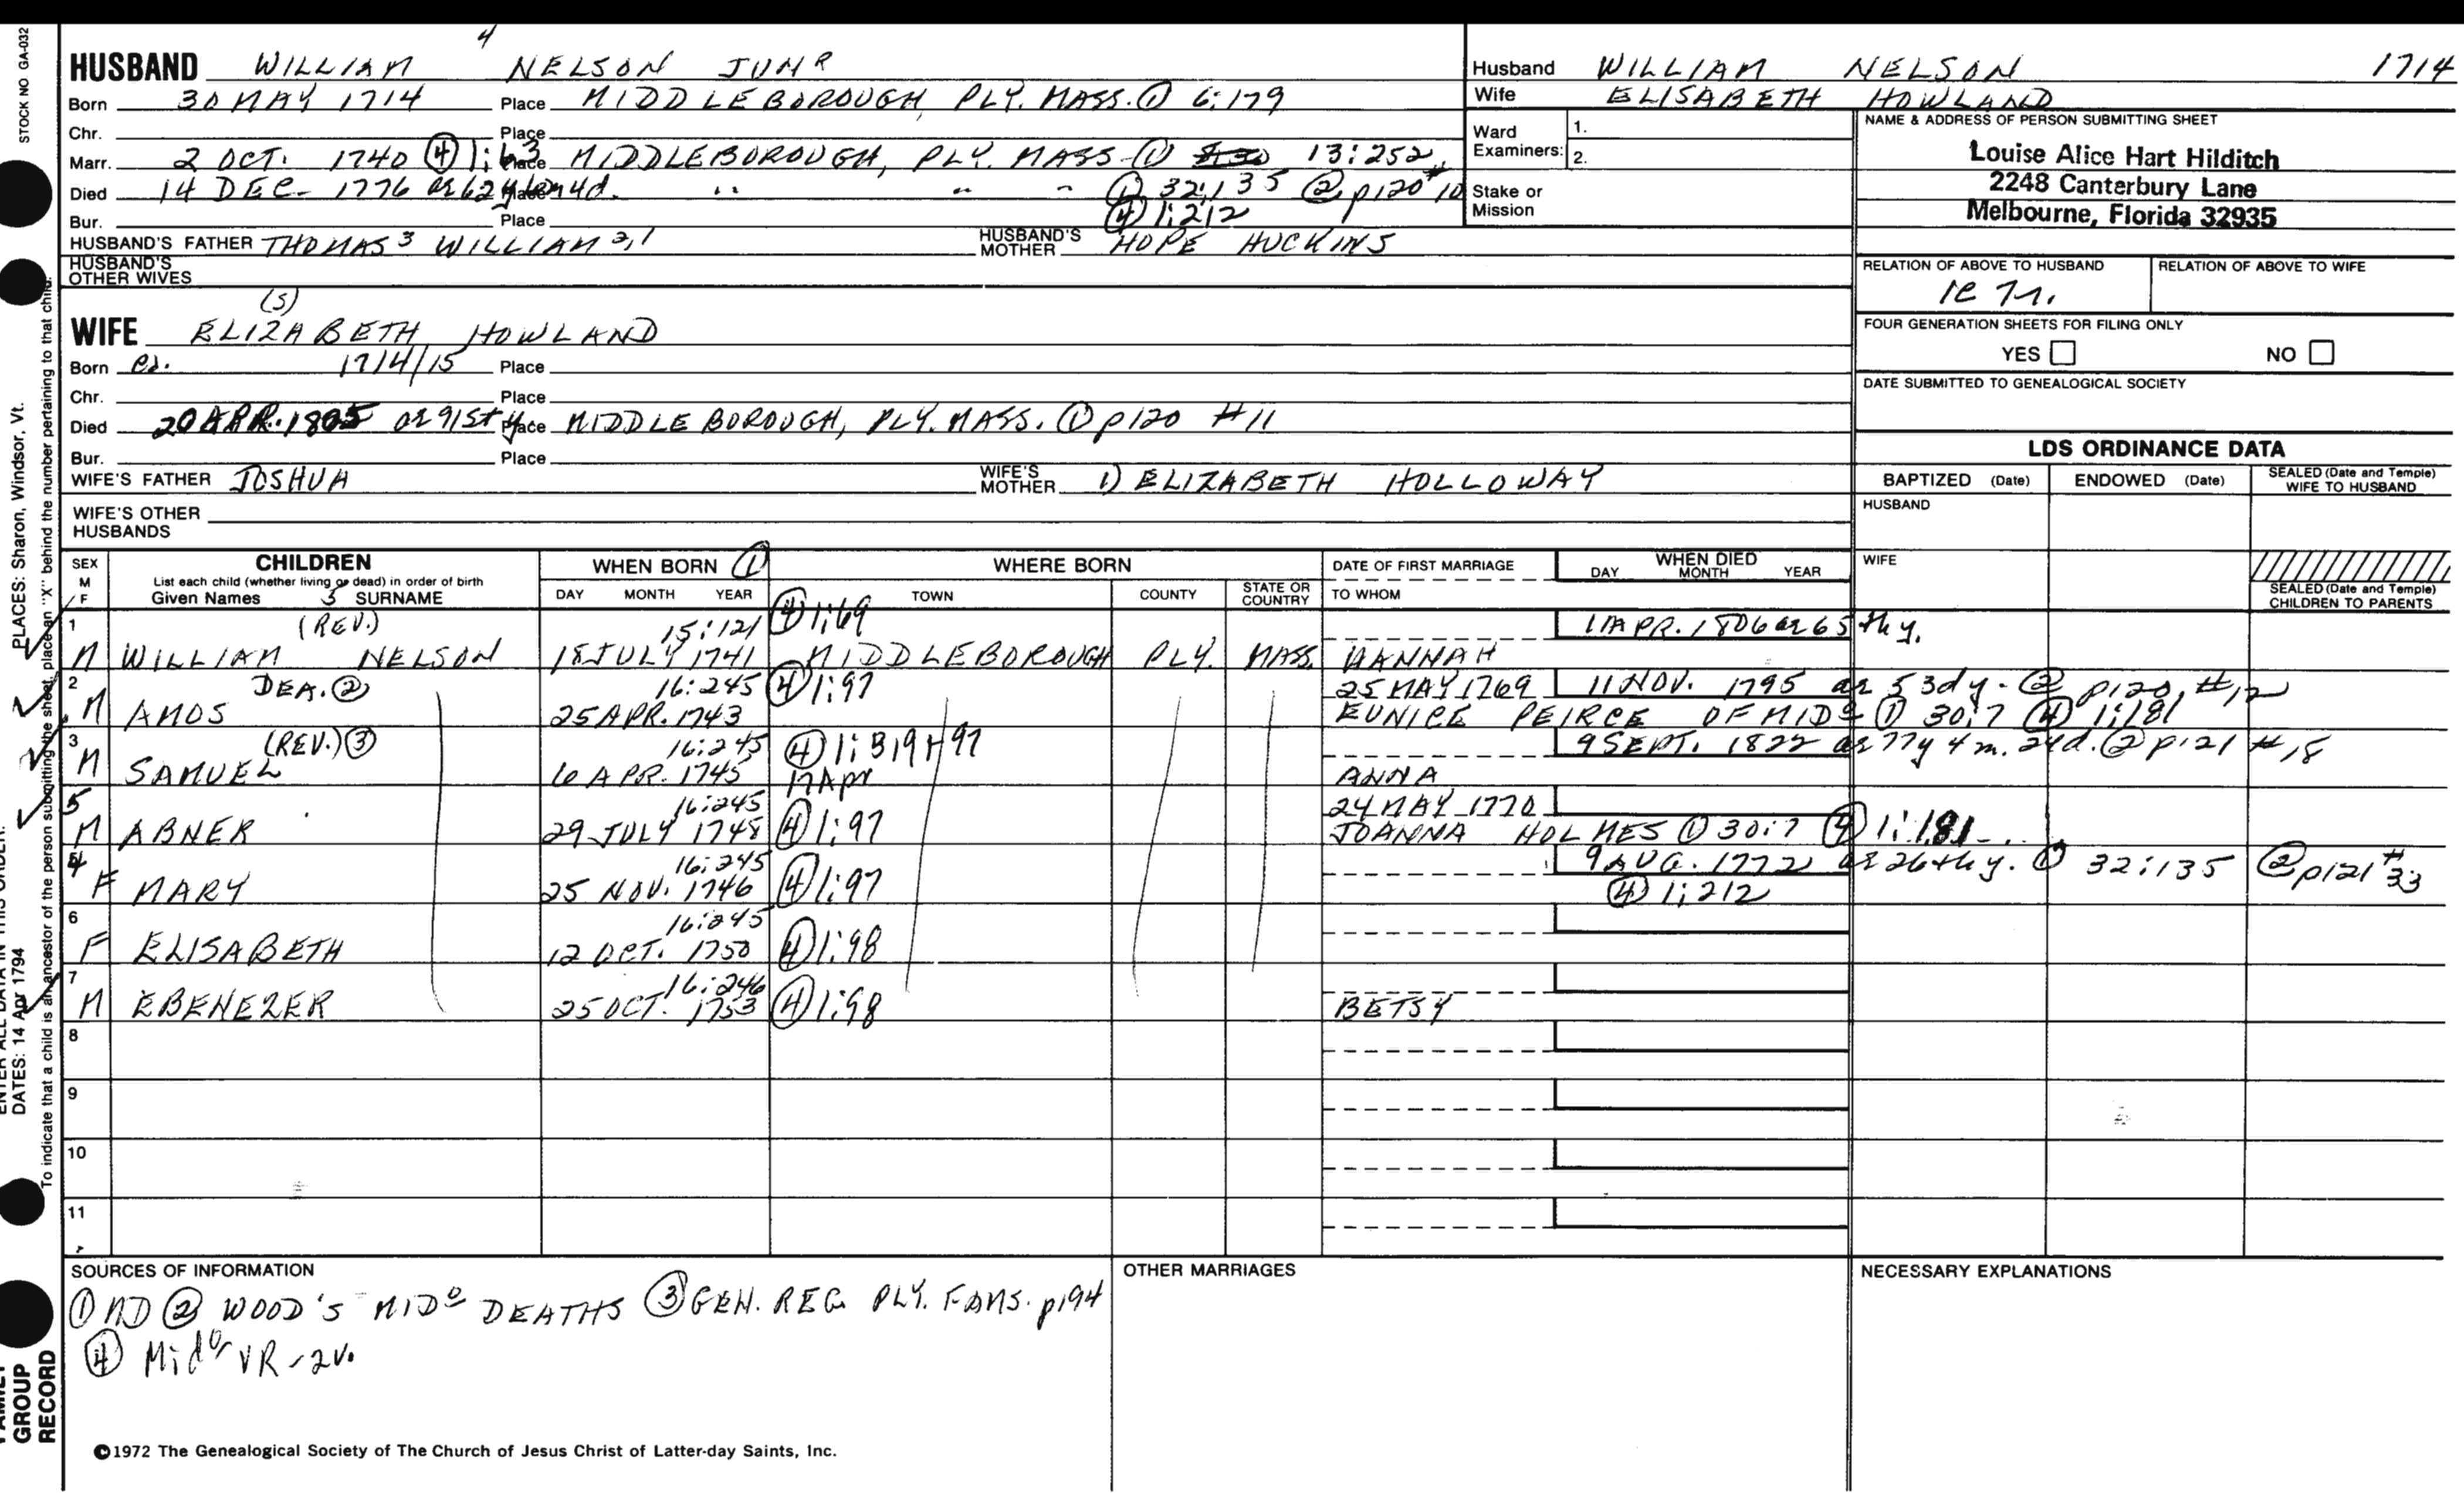 STOCK NO GA-032
4
HUSBAND WILLIAM NELSON JUNR
Born 30 MAY 1714 Place MIDDLEBOROUGH, PLY. MASS. ① 6:179
Chr. Place
Marr. 2 OCT. 1740 ④ 1:63 Place MIDDLEBOROUGH, PLY. MASS. ① 13:252
Died 14 DEC. 1776 ae 62y 6m 4d. Place " " " ① 32:135 ② p120 #10
④ 1:212
Bur. Place
HUSBAND'S FATHER THOMAS 3 WILLIAM 2,1 HUSBAND'S MOTHER HOPE HUCKINS
HUSBAND'S OTHER WIVES
(S)
WIFE ELIZABETH HOWLAND
Born ca. 1714/15 Place
Chr. Place
Died 20 APR. 1805 ae 91st y Place MIDDLEBOROUGH, PLY. MASS. ① p120 #11
Bur. Place
WIFE'S FATHER JOSHUA WIFE'S MOTHER 1) ELIZABETH HOLLOWAY
WIFE'S OTHER HUSBANDS
Husband WILLIAM NELSON 1714
Wife ELISABETH HOWLAND
Ward Examiners: 1.
2.
Stake or Mission
NAME & ADDRESS OF PERSON SUBMITTING SHEET
Louise Alice Hart Hilditch
2248 Canterbury Lane
Melbourne, Florida 32935
RELATION OF ABOVE TO HUSBAND RELATION OF ABOVE TO WIFE
FOUR GENERATION SHEETS FOR FILING ONLY
YES NO
DATE SUBMITTED TO GENEALOGICAL SOCIETY
LDS ORDINANCE DATA
BAPTIZED (Date) ENDOWED (Date) SEALED (Date and Temple) WIFE TO HUSBAND
HUSBAND
WIFE
SEALED (Date and Temple) CHILDREN TO PARENTS
SEX M / F CHILDREN WHEN BORN ① WHERE BORN DATE OF FIRST MARRIAGE WHEN DIED
List each child (whether living or dead) in order of birth
Given Names 5 SURNAME DAY MONTH YEAR TOWN COUNTY STATE OR COUNTRY TO WHOM DAY MONTH YEAR
1 (REV.) 15:121 ④ 1:69 11 APR. 1806 ae 65thy.
M WILLIAM NELSON 18 JULY 1741 MIDDLEBOROUGH PLY. MASS. HANNAH
2 DEA. ② 16:245 ④ 1:97 25 MAY 1769 11 NOV. 1795 ae 53d y. ② p120, #12
M AMOS 25 APR. 1743 EUNICE PEIRCE OF MIDo ① 30:7 ④ 1:181
3 (REV.) ③ 16:245 ④ 1:B19+97 9 SEPT. 1822 ae 77y 4m. 24d. ② p121 #18
M SAMUEL 6 APR. 1745 17 Apr ANNA
5 16:245 24 MAY 1770
M ABNER 29 JULY 1748 ④ 1:97 JOANNA HOLMES ① 30:7 ④ 1:181
4 16:245 9 AUG. 1772 ae 26thy. ① 32:135 ② p121 #33
F MARY 25 NOV. 1746 ④ 1:97 ④ 1:212
6 16:245
F ELISABETH 12 OCT. 1750 ④ 1:98
7 16:246
M EBENEZER 25 OCT. 1753 ④ 1:98 BETSY
8
9
10
11
SOURCES OF INFORMATION OTHER MARRIAGES NECESSARY EXPLANATIONS
① MD ② WOOD'S MIDo DEATHS ③ GEN. REG. PLY. FAMS. p194
④ Mido VR-2v.
©1972 The Genealogical Society of The Church of Jesus Christ of Latter-day Saints, Inc.
PLACES: Sharon, Windsor, Vt.
ENTER ALL DATA IN THIS ORDER:
DATES: 14 Apr 1794
To indicate that a child is an ancestor of the person submitting the sheet, place an "X" behind the number pertaining to that child.
FAMILY GROUP RECORD